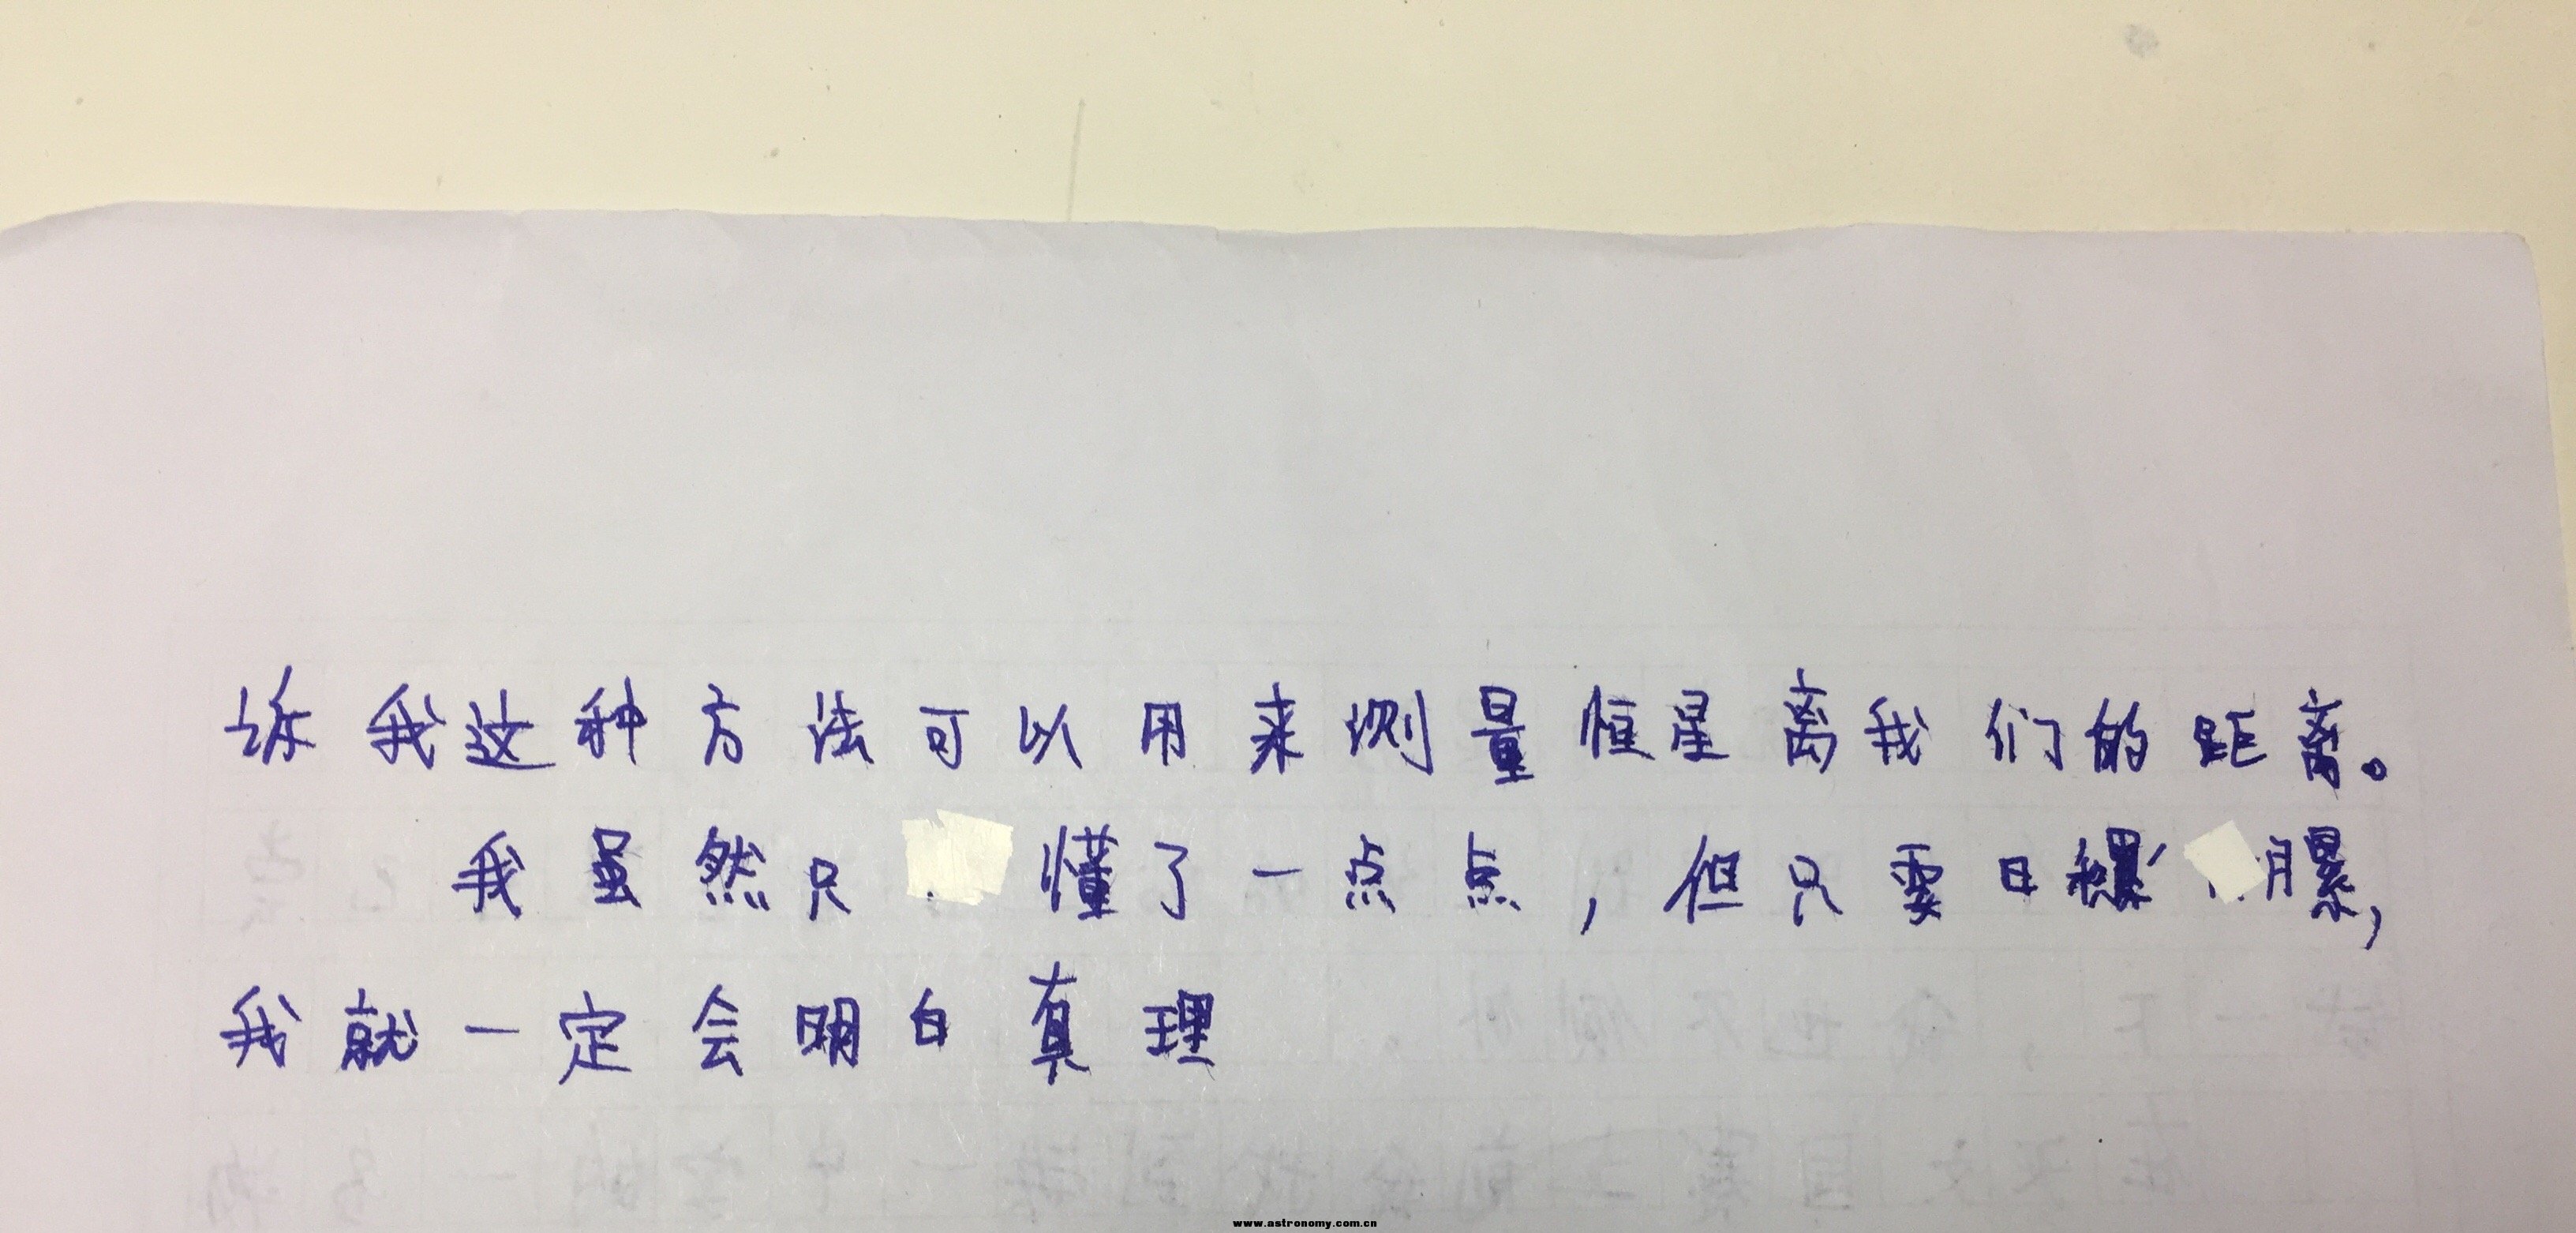 诉我这种方法可以用来测量恒星离我们的距离。
我虽然只懂了一点点，但只要日积月累，
我就一定会明白真理
www.astronomy.com.cn